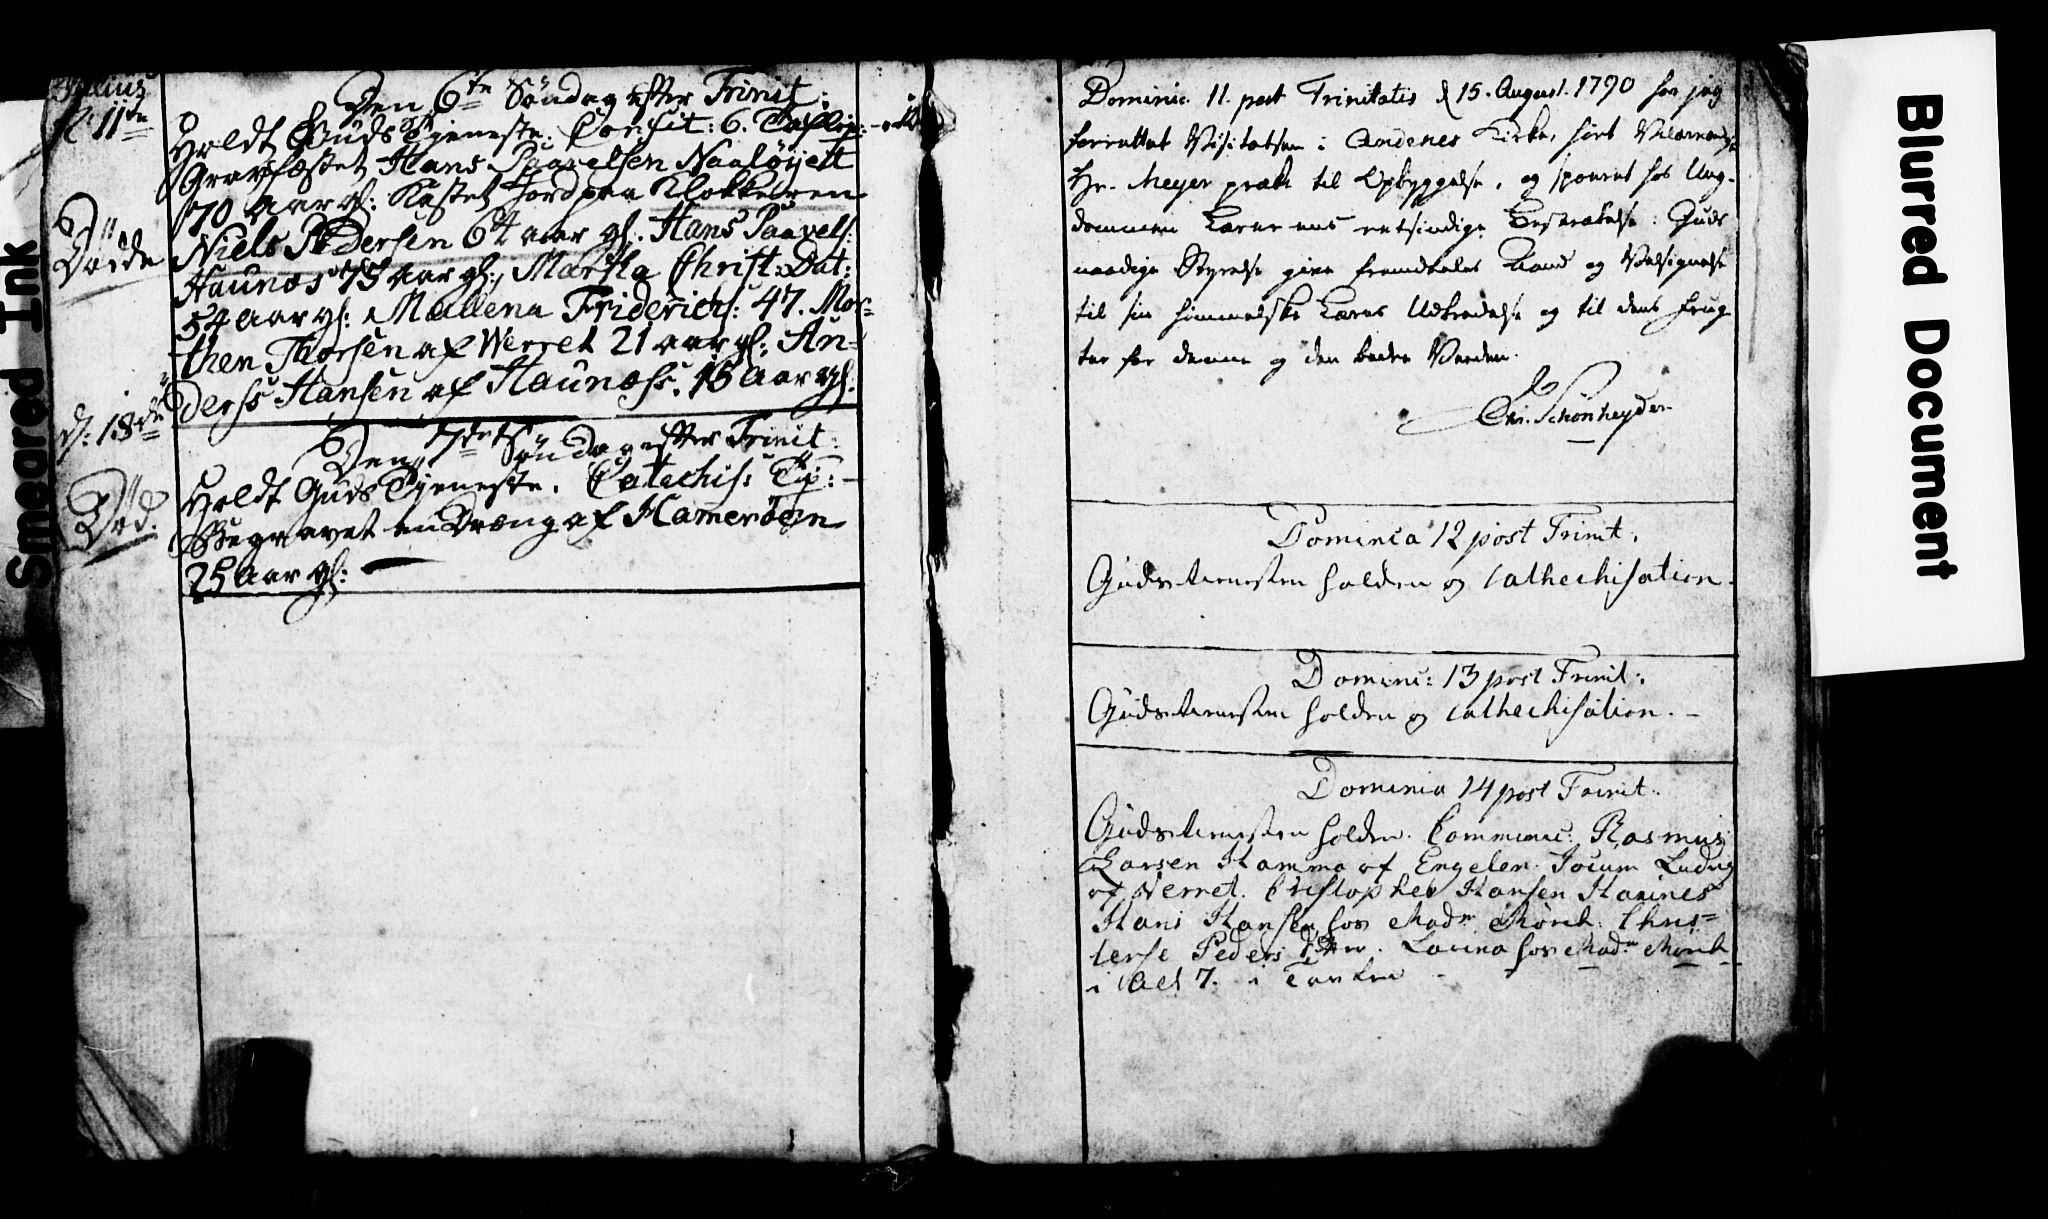 Smeared Ink
Julius
d: 11te
Den 6te Söndag efter Trinit:
Holdt Guds Tjeneste. Confit: 6.
Gravfæstet Hans Paavelsen Naaløyet
70 Aar gl: Kastet Jord paa Klokkeren
Døde
Niels Pedersen 64 aar gl. Hans Paavels:
Haunæs 75 Aar gl: Martha Christ: Dat:
54 aar gl: Mallena Friderichs: 47. Mor=
then Thorsen af Werret 21 aar gl: An=
derss Hansen af Haunæss. 15 Aar gl.
d: 18de
Den 7de Söndag efter Trinit:
Holdt Guds Tjeneste. Catechis:
Død.
Begravet en Dreng af Hamerøen
25 Aar gl:
Dominic. 11. post Trinitatis d 15. August. 1790 har jeg
forrettet Visitatsen i Andenes Kirke, hørt
Hr. Meyer præke til Opbyggelse, og sporet hos Ung-
dommen Lærerens retsindige Bestræbelse. Guds
naadige Styrelse give fremdeles Aand og Velsignelse
til sin himmelske Læres Udbredelse og til dens Frug
ter for denne og den bedre Verden.
Chr. Schönheyder
Dominica 12 post Trinit:
Gudstienesten holden og Cathechisation.
Domini: 13 post Trinit:
Gudstienesten holden og Cathechisation. -
Dominica 14 post Trinit:
Gudstienesten holden. Communic: Rasmus
Larsen Hamma af Engelen. Jocum Ludvig
af Verret. Cristopher Hansen Haunes
Hans Hansen hos Madm Mörch. Chris=
tense Peders Dtter. Lavina hos Madm Mörch
i alt 7.
Blurred Document